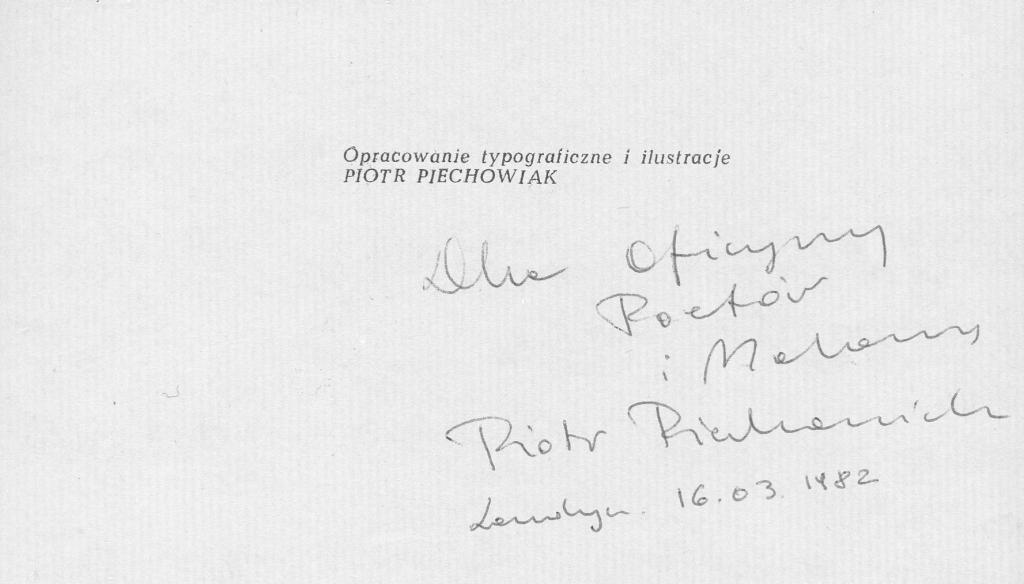 Opracowanie typograficzne i ilustracje
PIOTR PIECHOWIAK
Dla Oficyny
Poetów
i Malarzy
Piotr Piechowiak
Londyn. 16.03.1982